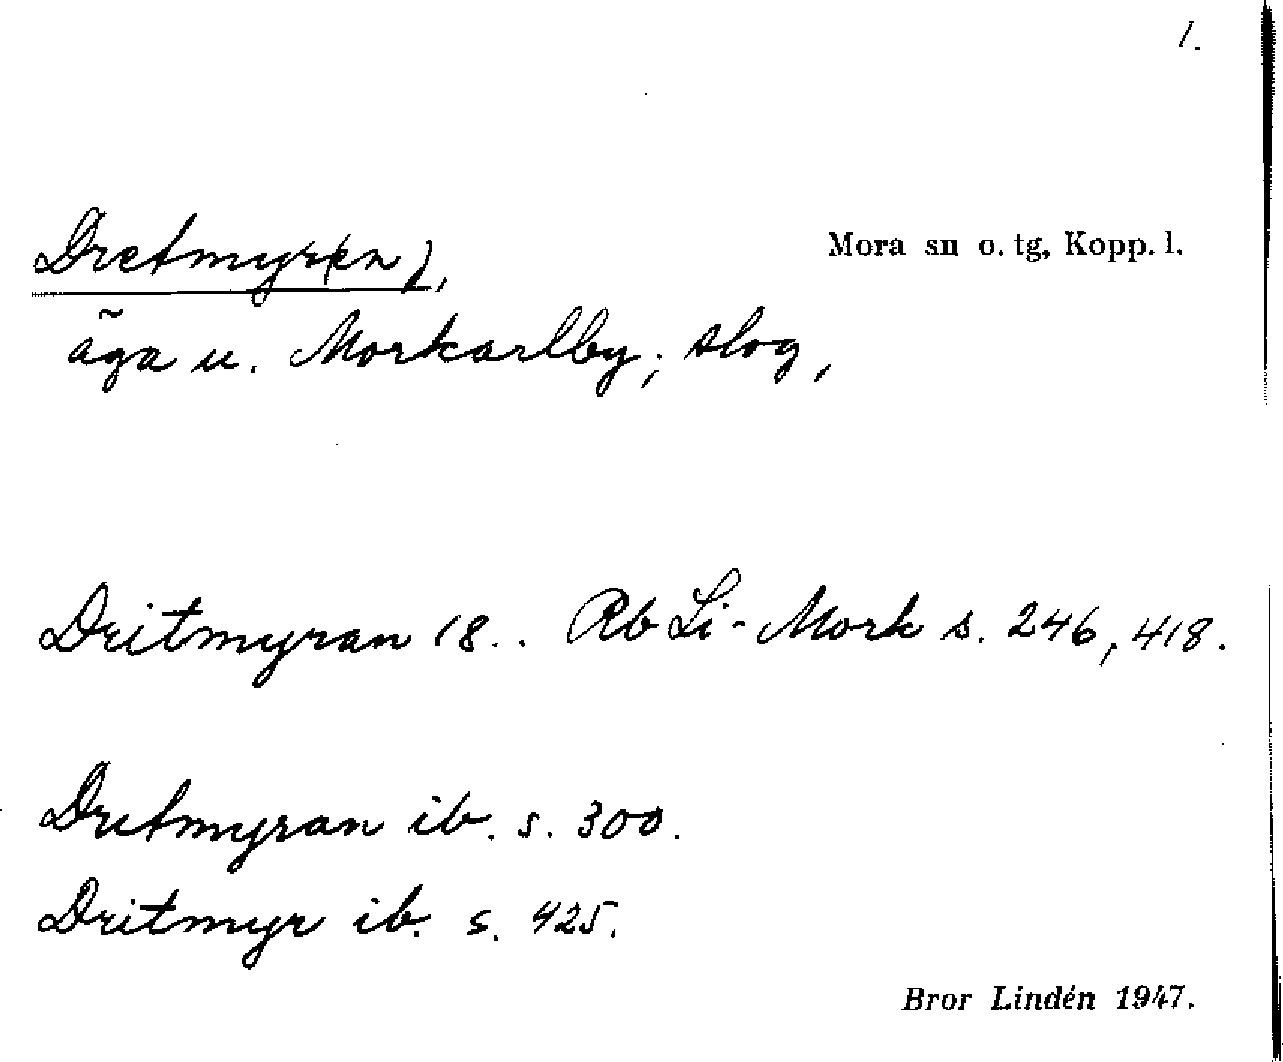 1.
Dretmyr(en),
Mora sn o. tg, Kopp. l.
äga u. Morkarlby; slog,
Dritmyran 18.. Rb Li-Mork s. 246, 418.
Dretmyran ib. s. 300.
Dritmyr ib. s. 425.
Bror Lindén 1947.